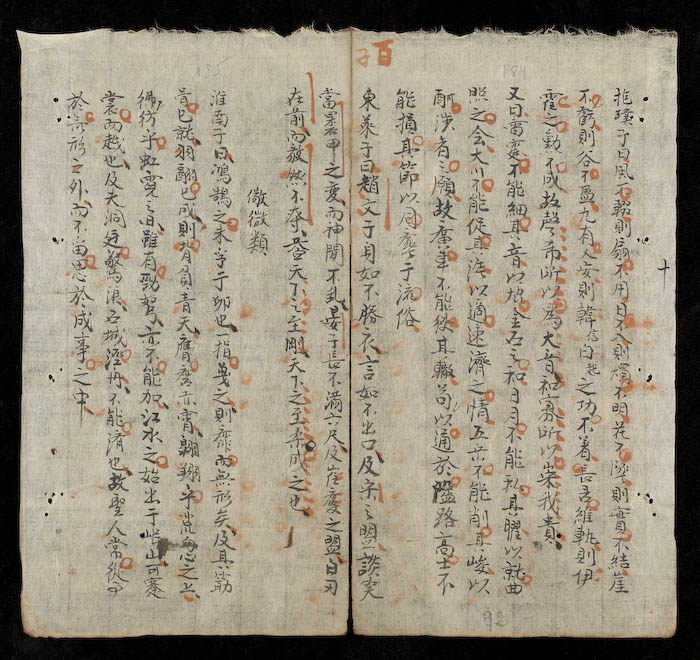 百子
184
十
抱璞子曰風不輟則扇不用日不入則燭不明花不墮則實不結崖
不虧則谷不盈九有乂安則韓信白起之功不著長吉維軌則伊
霍之勳不成故聲希所以為大音和寡所以崇我貴
又曰雷霆不能細其音以協金石之和日月不能私其耀以就曲
照之会大川不能促其涯以適速濟之情五岳不能削其峻以
酬陟者之願故廣車不能狹其轍苟以通於隘路高士不
能損其節以同塵于流俗
東萊子曰趙文子身如不勝衣言如不出口及宋之盟談笑
92
185
當衷甲之變而神閒不乱晏子長不滿六尺及崔慶之盟白刃
在前而毅然不奪蓋天下之至剛天下之至柔成之也
儆微類
淮南子曰鴻鵠之未孚于卵也一指蔑之則靡而無形矣及其筋
骨已就羽翮已成則背負青天膺摩赤霄翺翔乎荒忽之上
彿彷乎虹霓之間雖有勁弩亦不能加江水之始出于岷山可褰
裳而越也及夫洞庭鶩浪石城舟不能濟也故聖人常從事
於無形之外而不留思於成事之中